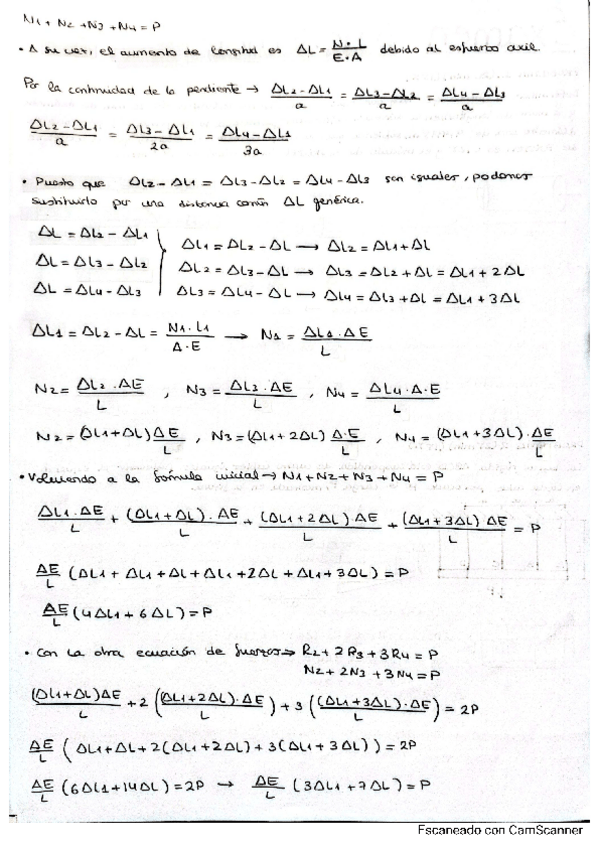 N1 + N2 + N3 + N4 = P
• A su vez, el aumento de longitud es ΔL = N·L / E·A debido al esfuerzo axil.
Por la continuidad de la pendiente → ΔL2 - ΔL1 / a = ΔL3 - ΔL2 / a = ΔL4 - ΔL3 / a
ΔL2 - ΔL1 / a = ΔL3 - ΔL1 / 2a = ΔL4 - ΔL1 / 3a
• Puesto que ΔL2 - ΔL1 = ΔL3 - ΔL2 = ΔL4 - ΔL3 son iguales, podemos
sustituirlo por una distancia común ΔL genérica.
ΔL = ΔL2 - ΔL1
ΔL = ΔL3 - ΔL2
ΔL = ΔL4 - ΔL3
ΔL1 = ΔL2 - ΔL → ΔL2 = ΔL1 + ΔL
ΔL2 = ΔL3 - ΔL → ΔL3 = ΔL2 + ΔL = ΔL1 + 2ΔL
ΔL3 = ΔL4 - ΔL → ΔL4 = ΔL3 + ΔL = ΔL1 + 3ΔL
ΔL1 = ΔL2 - ΔL = N1·L1 / A·E → N1 = ΔL1·AE / L
N2 = ΔL2·AE / L , N3 = ΔL3·AE / L , N4 = ΔL4·A·E / L
N2 = (ΔL1 + ΔL) AE / L , N3 = (ΔL1 + 2ΔL) A·E / L , N4 = (ΔL1 + 3ΔL)·AE / L
• Volviendo a la fórmula inicial → N1 + N2 + N3 + N4 = P
ΔL1·AE / L + (ΔL1 + ΔL)·AE / L + (ΔL1 + 2ΔL)·AE / L + (ΔL1 + 3ΔL)·AE / L = P
AE / L (ΔL1 + ΔL1 + ΔL + ΔL1 + 2ΔL + ΔL1 + 3ΔL) = P
AE / L (4ΔL1 + 6ΔL) = P
• Con la otra ecuación de fuerzas → R2 + 2R3 + 3R4 = P
N2 + 2N3 + 3N4 = P
(ΔL1 + ΔL)AE / L + 2 ((ΔL1 + 2ΔL)·AE / L) + 3 ((ΔL1 + 3ΔL)·AE / L) = 2P
AE / L (ΔL1 + ΔL + 2(ΔL1 + 2ΔL) + 3(ΔL1 + 3ΔL)) = 2P
AE / L (6ΔL1 + 14ΔL) = 2P → AE / L (3ΔL1 + 7ΔL) = P
Escaneado con CamScanner